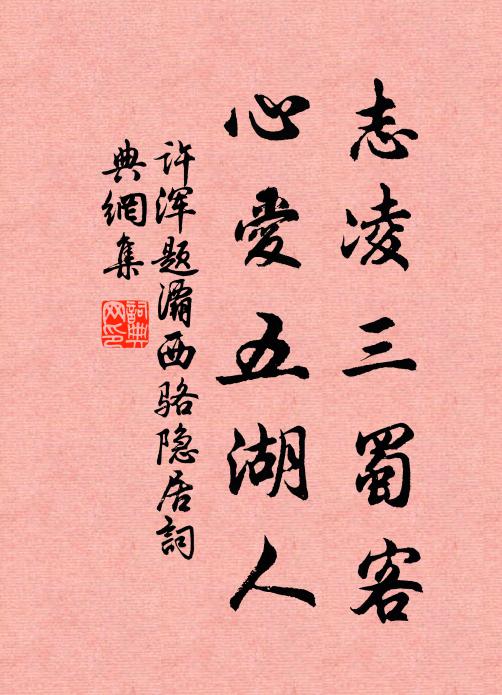 志凌三蜀客
心愛五湖人
许浑题灞西骆隐居詞
典網集
詞典
网印